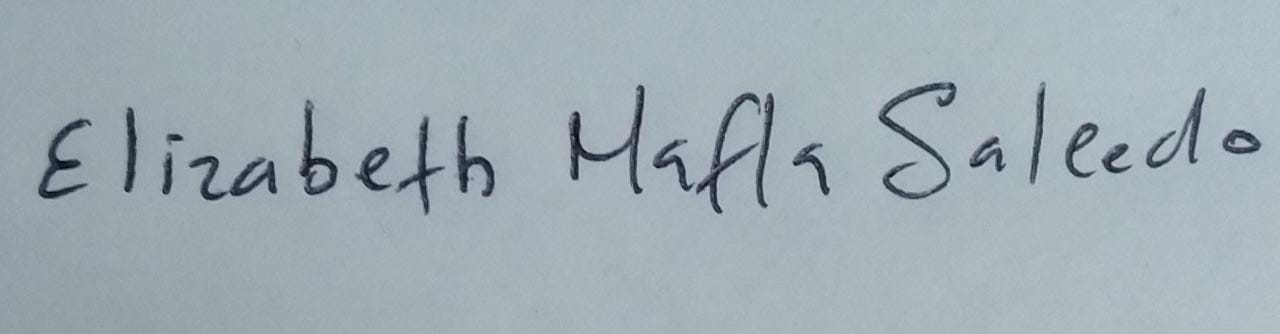 Elizabeth Mafla Saleedo